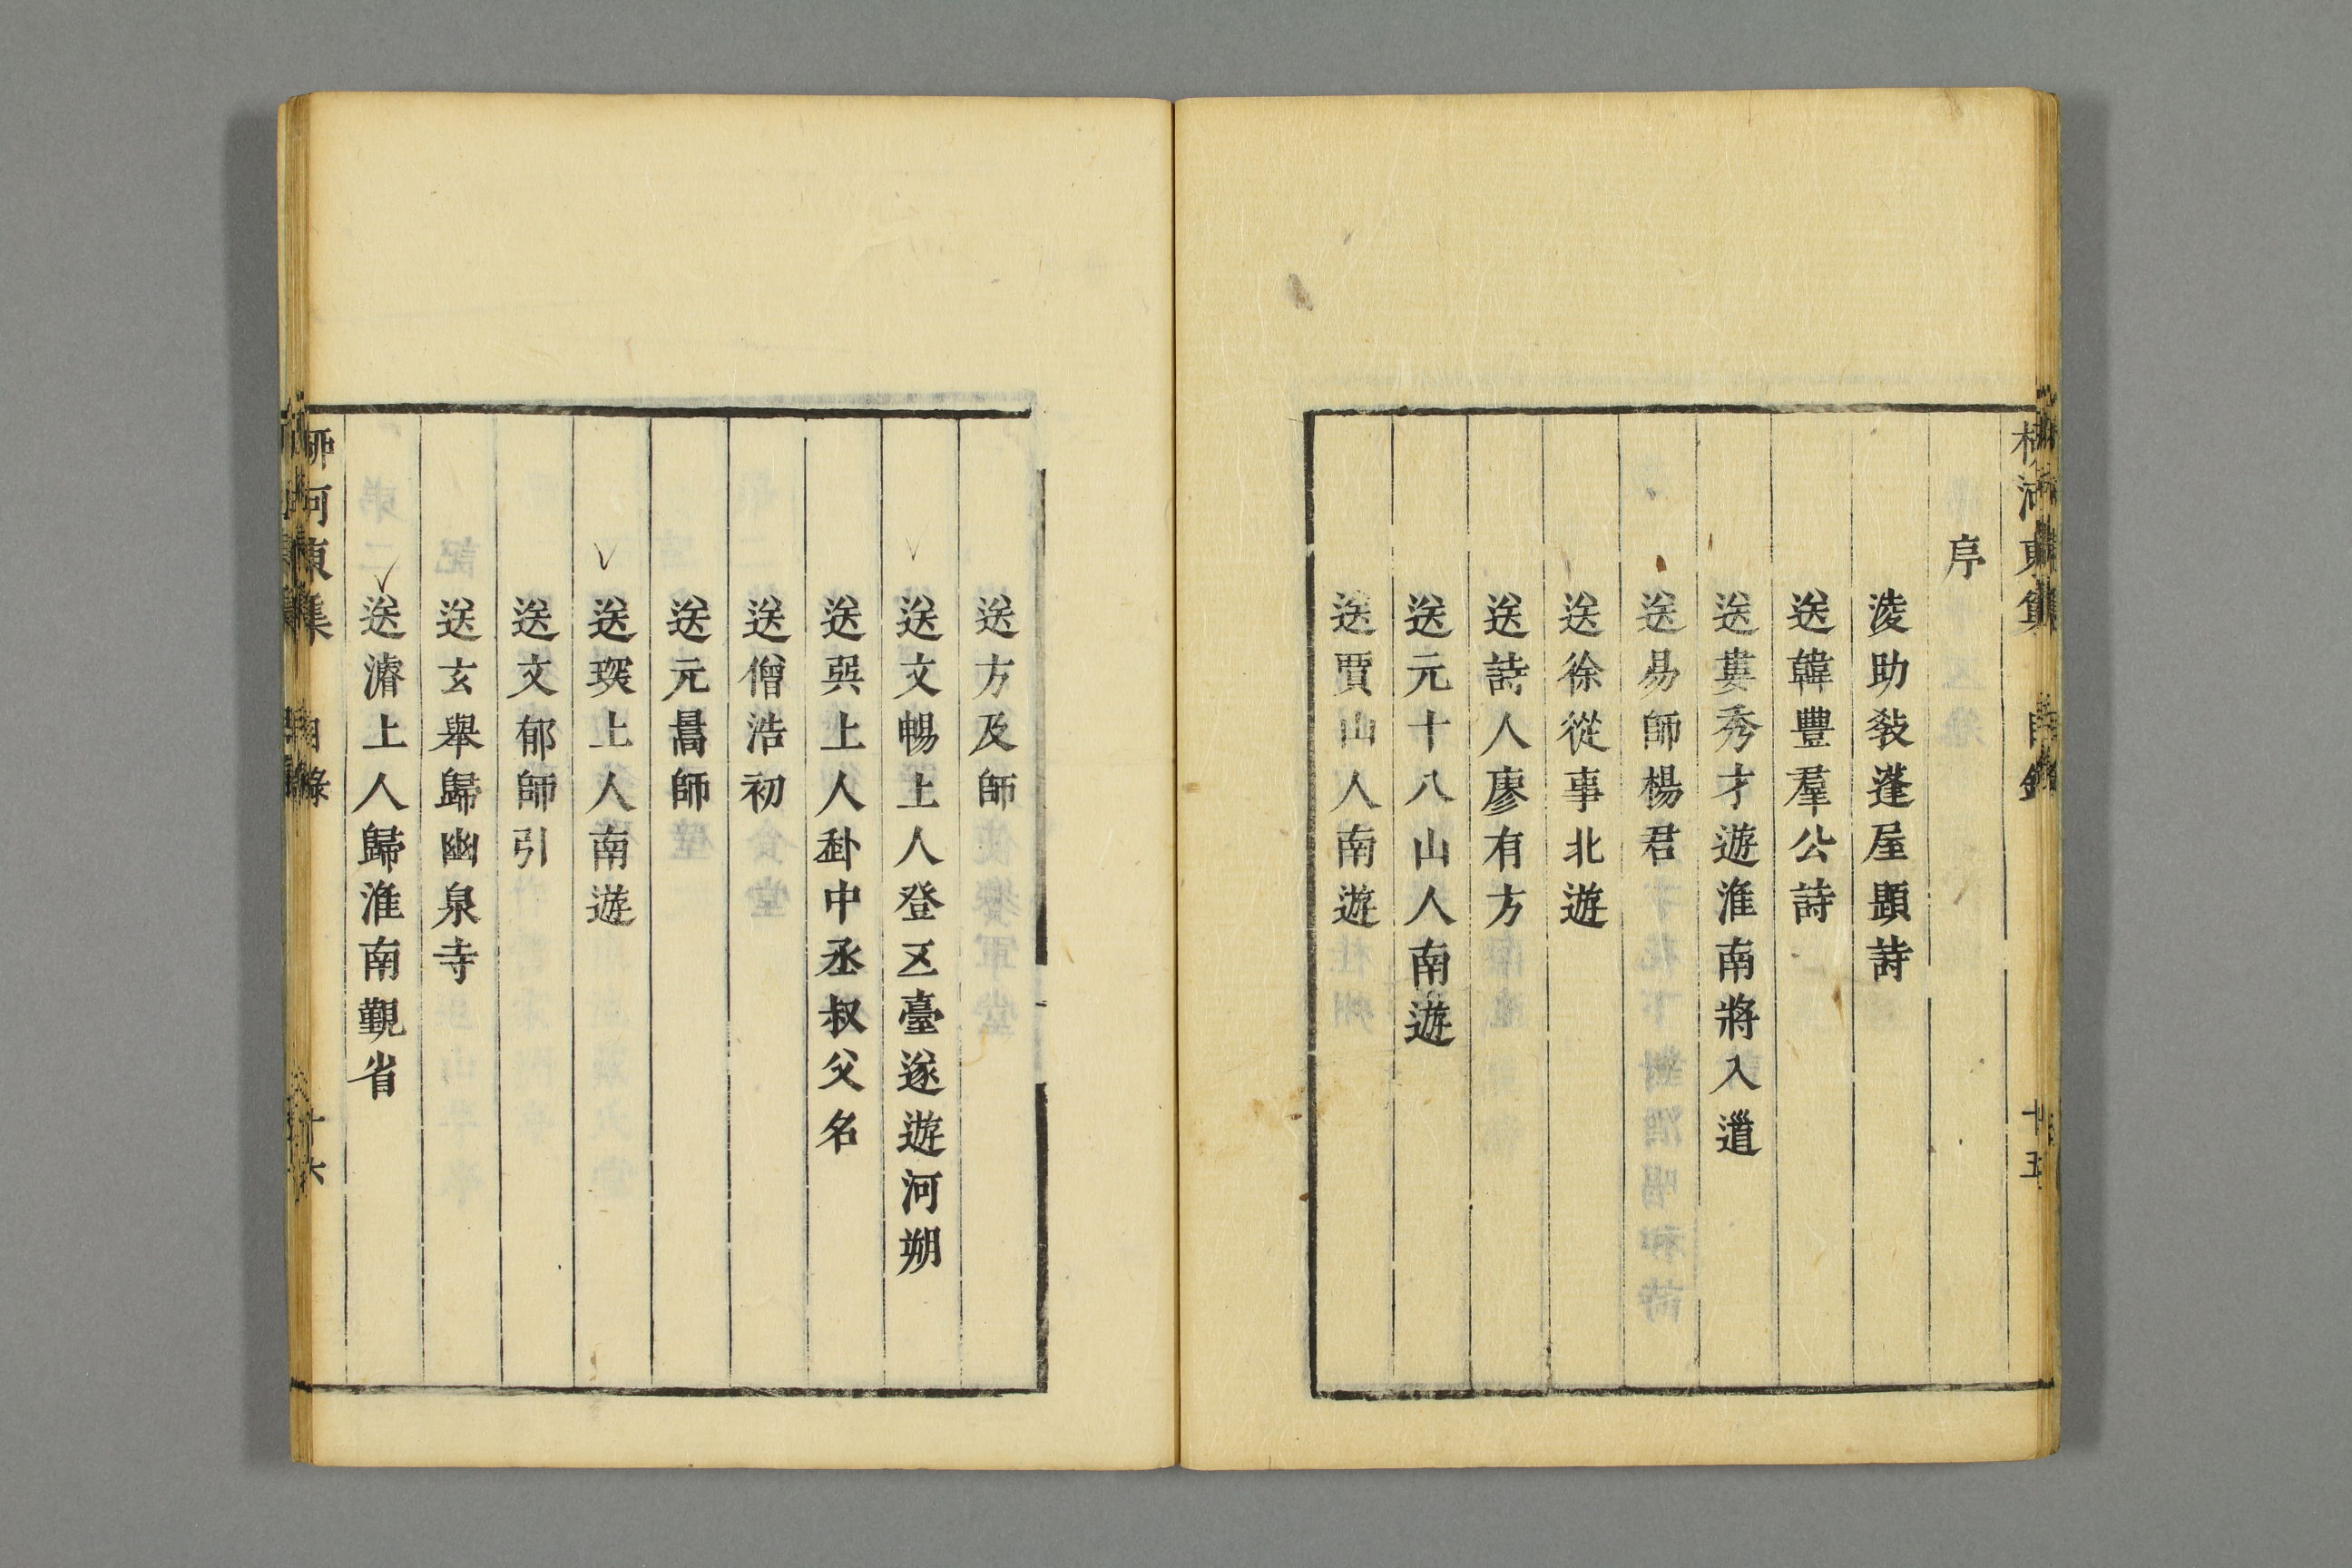 柳河東集 目錄 十五
序
淩助敎蓬屋題詩
送韓豐羣公詩
送蔞秀才遊淮南將入道
送易師楊君
送徐從事北遊
送詩人廖有方
送元十八山人南遊
送賈山人南遊
送方及師
送文暢上人登五臺遂遊河朔
送巽上人赴中丞叔父名
送僧浩初
送元暠師
送琛上人南遊
送文郁師引
送玄舉歸幽泉寺
送濬上人歸淮南覲省
柳河東集 目錄 十六